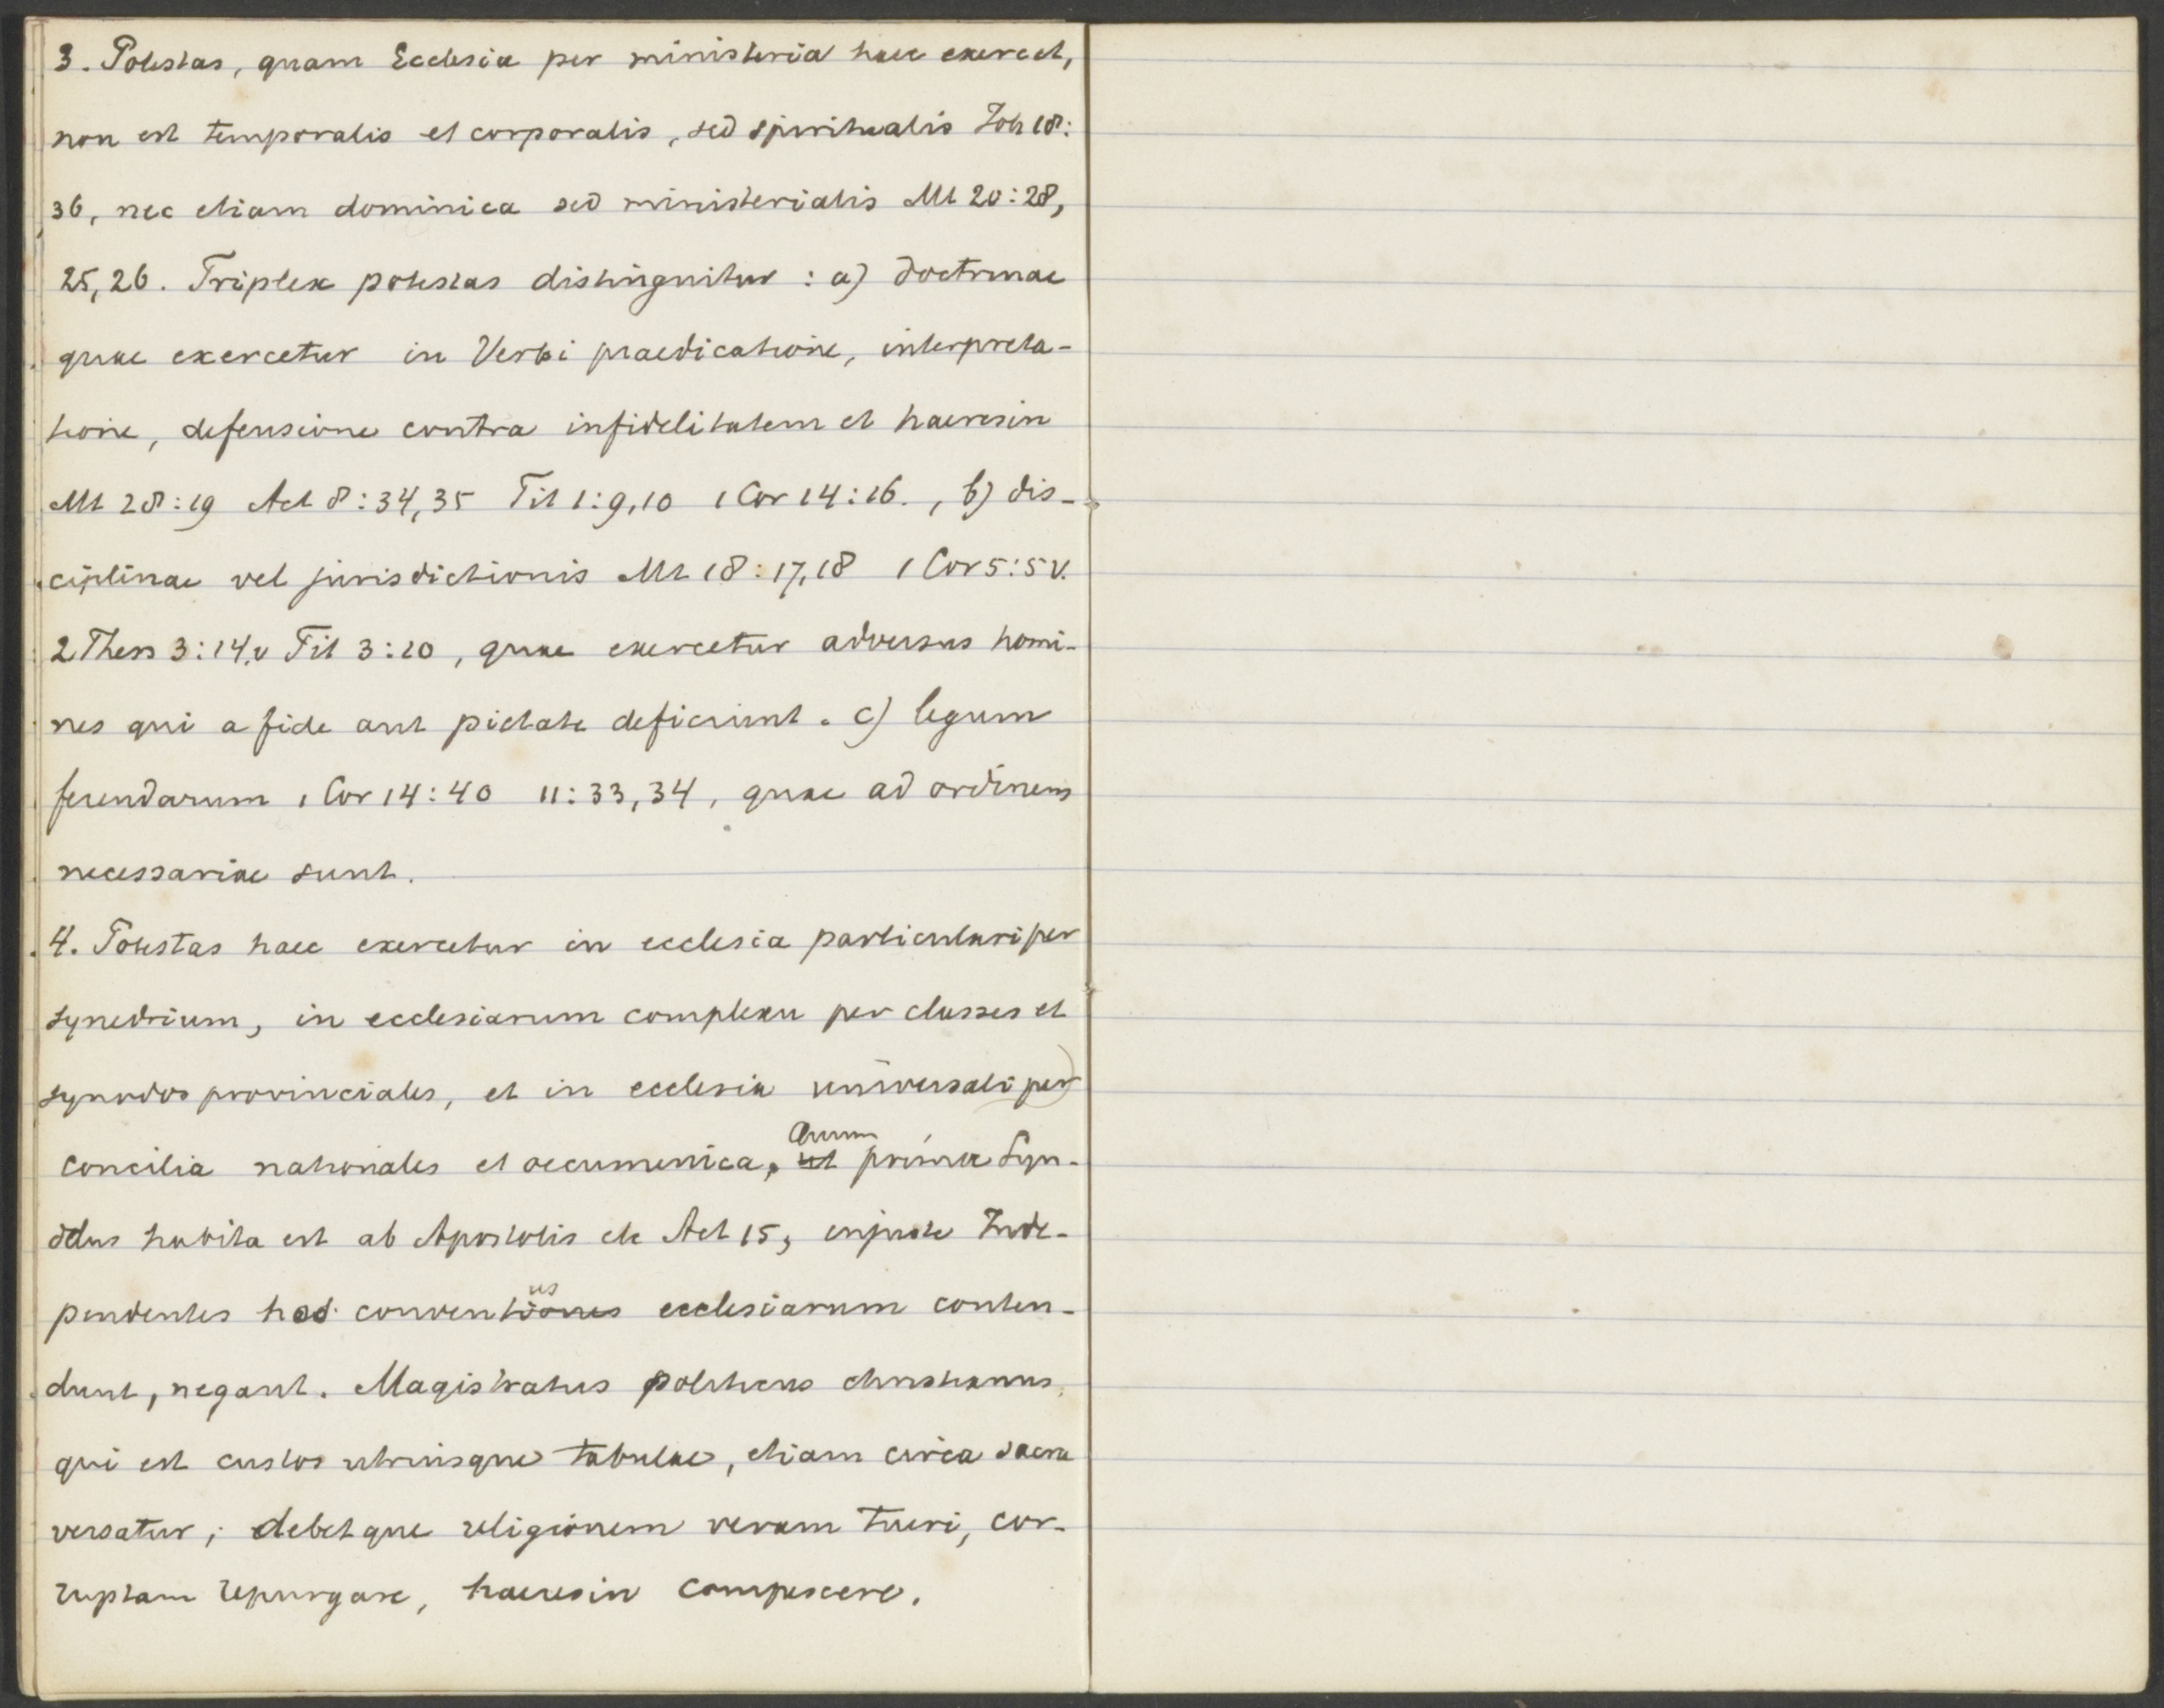 3. Potestas, quam Ecclesia per ministeria haec exercet,
non est temporalis et corporalis, sed spiritualis Joh 18:
36, nec etiam dominica sed ministerialis Mt 20:28,
25,26. Triplex potestas distinguitur : a) doctrinae
quae exercetur in Verbi praedicatione, interpreta-
tione, defensione contra infidelitatem et haeresin
Mt 28:19 Act 8:34,35 Tit 1:9,10 1 Cor 14:16. , b) dis-
ciplinae vel jurisdictionis Mt 18:17,18 1 Cor 5:5 v.
2 Thess 3:14,v Tit 3:10, quae exercetur adversus homi-
nes qui a fide aut pietate deficiunt. c) legum
ferendarum 1 Cor 14:40 11:33,34, quae ad ordinem
necessariae sunt.
4. Potestas haec exercetur in ecclesia particulari per
synedrium, in ecclesiarum complexu per classes et
synodos provinciales, et in ecclesia universali per
Quum
concilia nationales et oecumenica, ut prima Syn-
odus habita est ab Apostolis etc Act 15, injuste Inde-
us
pendentes hos conventiones ecclesiarum conten-
dunt, negant. Magistratus politicus christianus,
qui est custos utriusque tabulae, etiam circa sacra
versatur; debetque religionem veram tueri, cor-
ruptam repurgare, haeresin compescere.